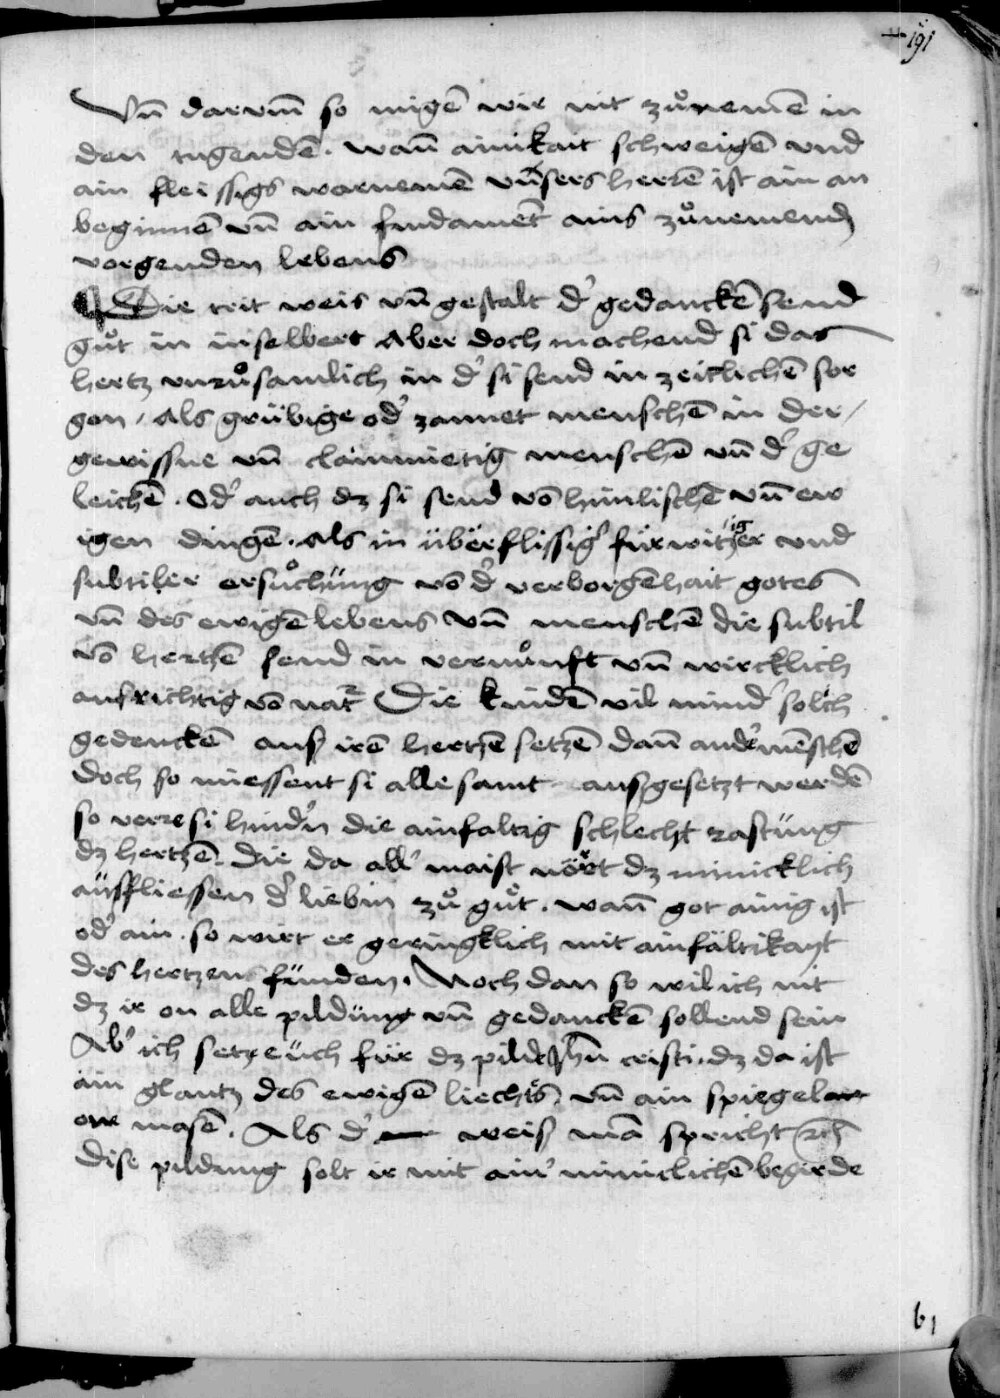 191
Vn̄ darvm̄ so migē wir nit zůnemē in
den tugendē. wan̄ ainikait schweigē vnd
ain fleissigs warnemē vn̄sers herrē ist ain an
beginnē vn̄ ain fundamēt ains zůnemend
vorgenden lebens
Die trit weis vn̄ gestalt d' gedanckē send
gůt in inselbert Aber doch machend si das
hertz vnrůsamlich in d' si send in zeitlichē sor
gen / Als grübige od' zannet menschē in der
gewissne vn̄ clainmietig menschē vn̄ d' ge
leichē. Od' auch dz si send vō himlischē vn̄ ew
igen dingē. Als in überflissig' fürwitziger vnd
subtiler ersůchüng vō d' verborgēhait gotes
vn̄ des ewigē lebens vn̄ menschē die subtil
vō hertzē send in vernůnft vn̄ wircklich
aufrichtig vō nat᷑ Die kindē vil mind' solch
gedenckē ausz irē hertzē setzē dan̄ and' mēschē
doch so miessent si alle samt ausgesetzt werdē
so verre si hind'n die ainfaltig schlecht rastüng
dz hertzē. Die da all' maist nört dz minicklich
äusfliessen d' liebin zů gůt. wan̄ got ainig ist
od' ain. so wirt er geringklich mit ainfältikayt
des hertzens fünden. Noch dan so wil ich nit
dz ir on alle pildüng vn̄ gedanckē sollend sein
Ab' ich setz eüch für dz pild Jhū cristi. dz da ist
ain glantz des ewigē liechts vn̄ ain spiegel
on masē. Als d' weisz mā spricht
Dise pildung solt ir mit ain' miniclichē begirde
61